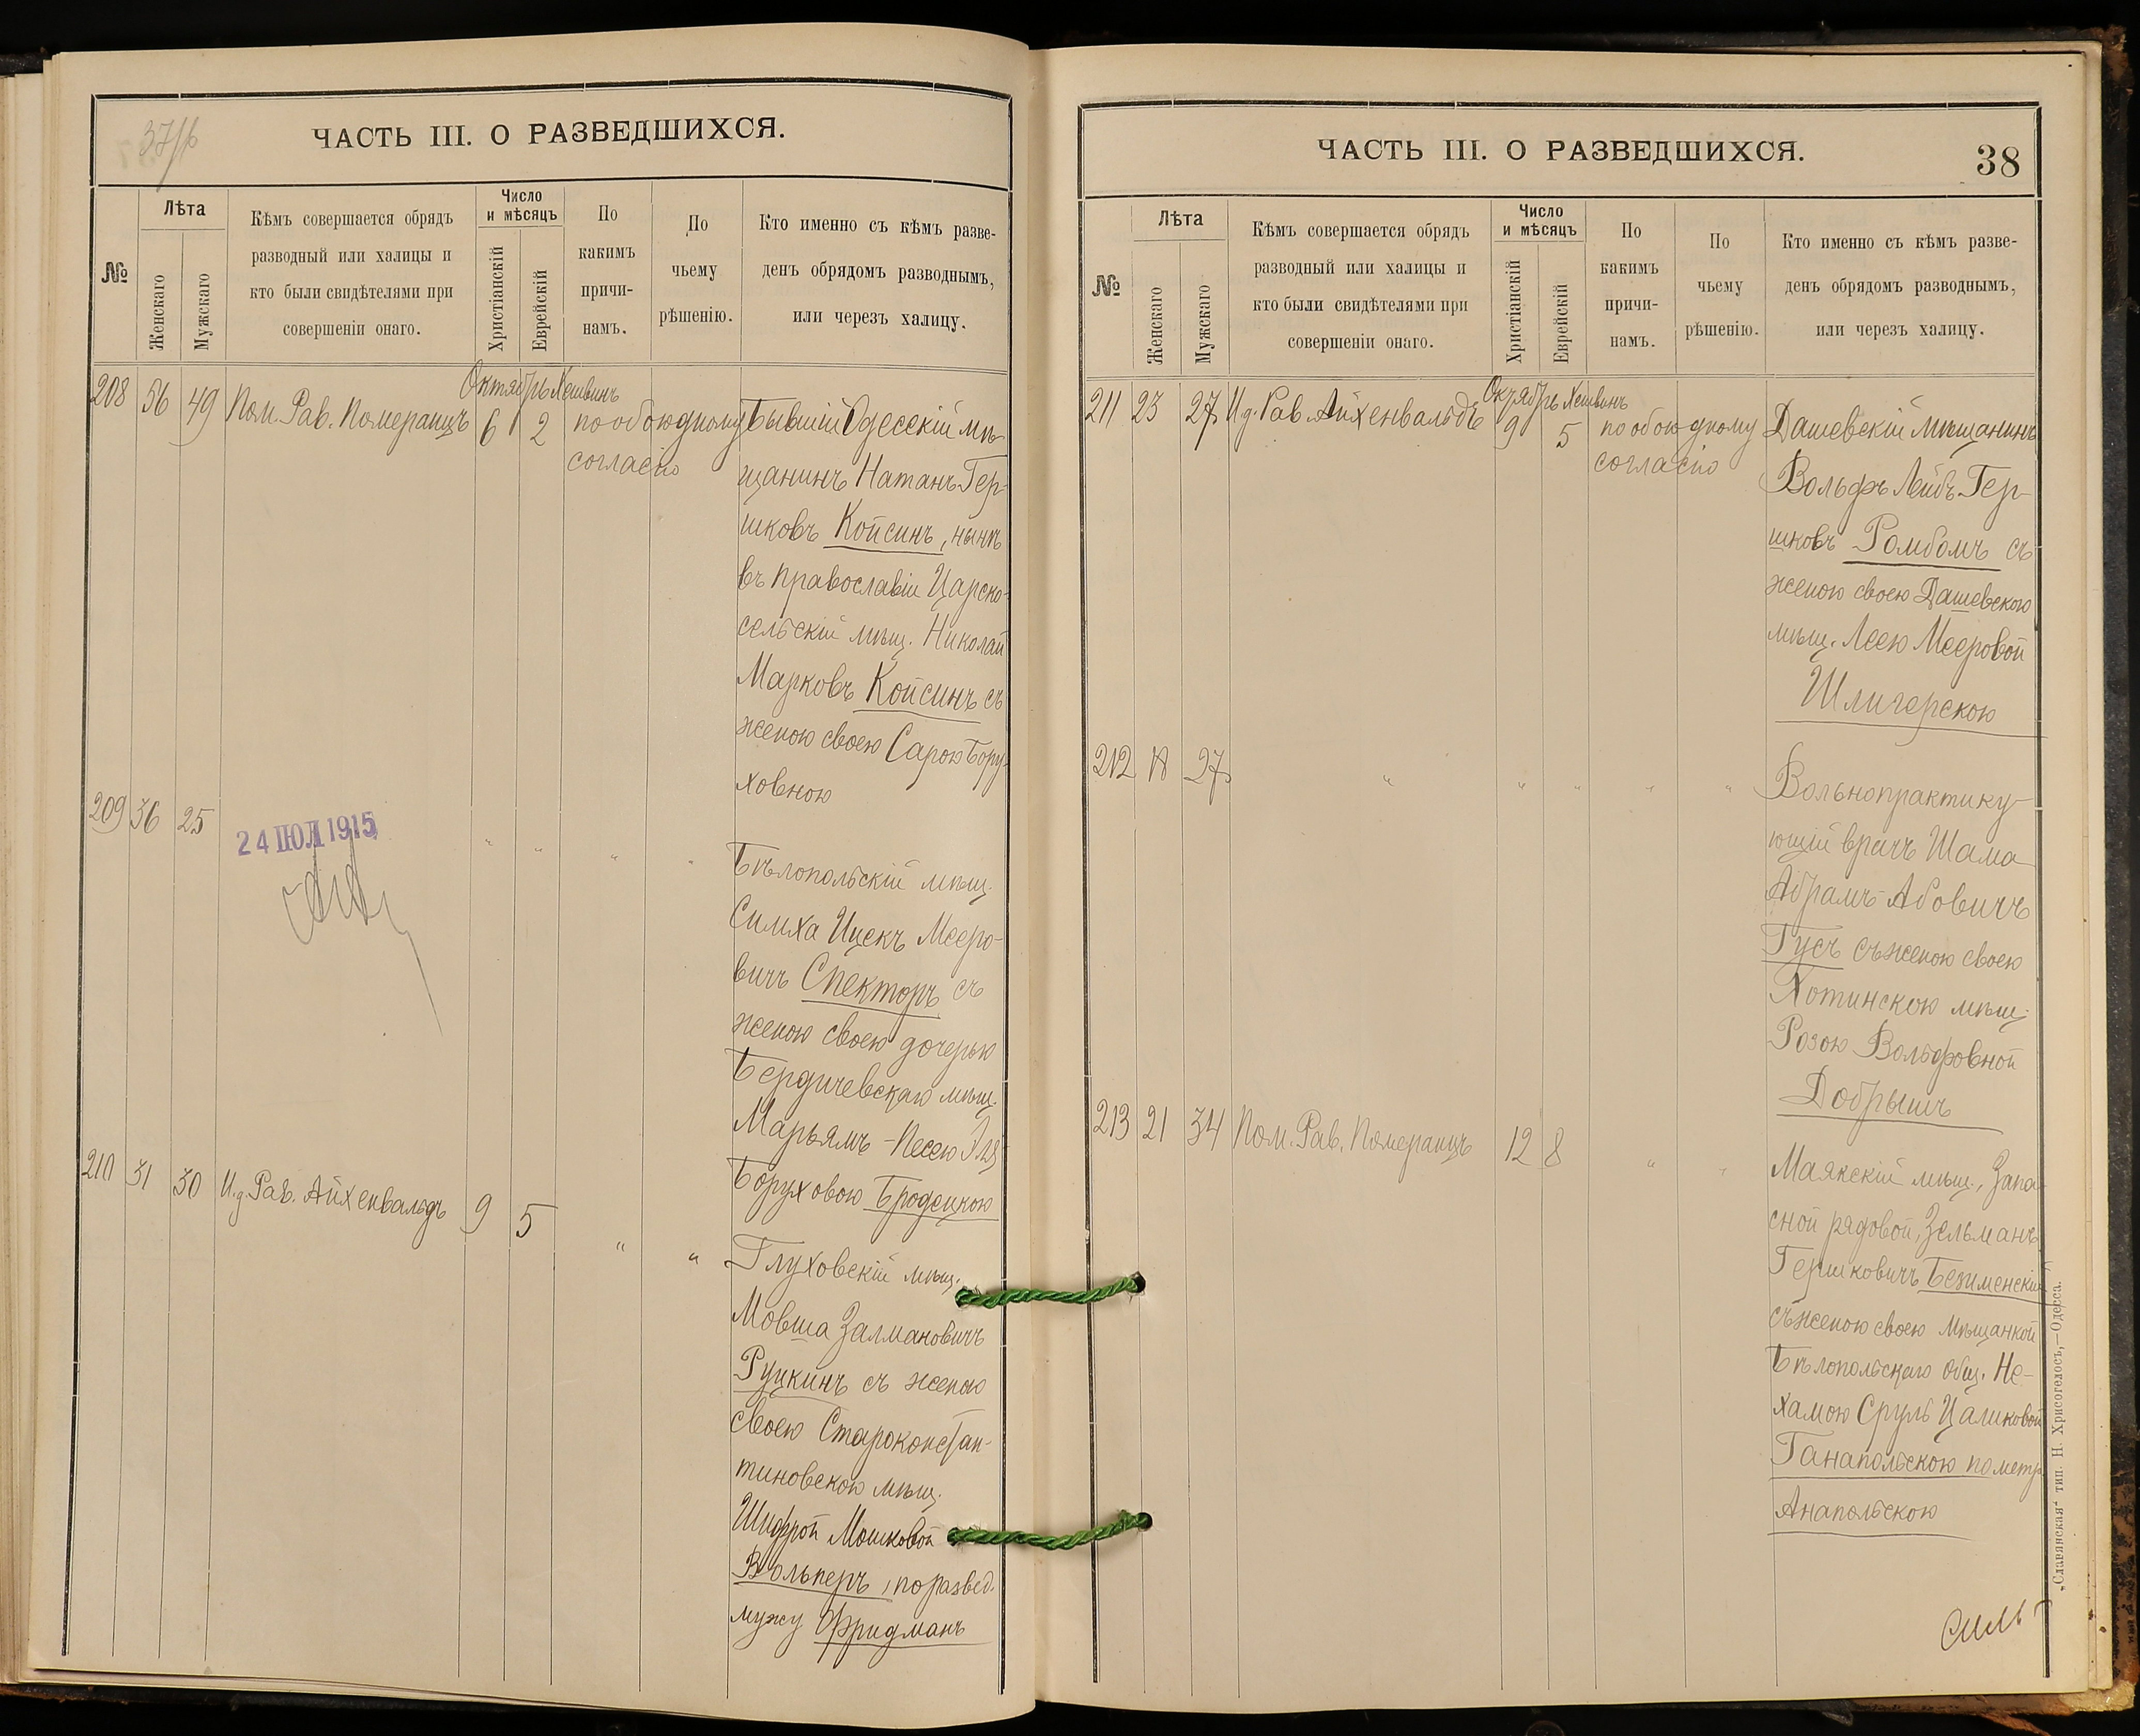 ЧАСТЬ III. О РАЗВЕДШИХСЯ.
№
Лѣта
Женскаго
Мужскаго
Кѣмъ совершается обрядъ
разводный или халицы и
кто были свидѣтелями при
совершеніи онаго.
Число
и мѣсяцъ
Христіанскій
Еврейскій
По
какимъ
причи-
намъ.
По
чьему
рѣшенію.
Кто именно съ кѣмъ разве-
денъ обрядомъ разводнымъ,
или черезъ халицу.
Октябрь Хешвинъ
208 56 49 Пом. Рав. Померанцъ 6 2 по обоюдному
согласію
Бывшій Одесскій мѣ-
щанинъ Натанъ Гер-
шковъ Койсинъ, нынѣ
въ православіи Царско-
сельскій мѣщ. Николай
Марковъ Койсинъ съ
женою своею Сарою Бору-
ховною
209 36 25 " " " "
24 ІЮЛ 1915
Бѣлопольскій мѣщ.
Симха Ицекъ Мееро-
вичъ Спекторъ съ
женою своею дочерью
Бердичевскаго мѣщ.
Марьямъ-Песею
Боруховою Бродецкою
210 31 30 И.д. Рав. Айхенвальдъ 9 5 " "
Глуховскій мѣщ.
Мовша Залмановичъ
Руцкинъ съ женою
своею Староконстан-
тиновскою мѣщ.
Шифрой Мошковой
Вольперъ, по развед.
мужу Фридманъ
ЧАСТЬ III. О РАЗВЕДШИХСЯ.
38
№
Лѣта
Женскаго
Мужскаго
Кѣмъ совершается обрядъ
разводный или халицы и
кто были свидѣтелями при
совершеніи онаго.
Число
и мѣсяцъ
Христіанскій
Еврейскій
По
какимъ
причи-
намъ.
По
чьему
рѣшенію.
Кто именно съ кѣмъ разве-
денъ обрядомъ разводнымъ,
или черезъ халицу.
Октябрь Хешвинъ
211 23 27 И.д. Рав. Айхенвальдъ 9 5 по обоюдному
согласію
Дашевскій мѣщанинъ
Вольфъ Лейбъ Гер-
шковъ Ромбомъ съ
женою своею Дашевскою
мѣщ. Леею Мееровой
Шличерскою
212 27 " " " " "
Вольнопрактику-
ющій врачъ Шама
Абрамъ Абовичъ
Гусъ съ женою своею
Хотинскою мѣщ.
Розою Вольфовной
Добрышъ
213 21 34 Пом. Рав. Померанцъ 12 8 " "
Маякскій мѣщ., Запа-
сной рядовой, Зельманъ
Гершковичъ Безименскій
съ женою своею мѣщанкой
Бѣлопольскаго общ. Не-
хамою Сруль Цаликовой
Ганапольскою по метр.
Анапольскою
„Славянская“ тип. Н. Хрисогелосъ,—Одесса.